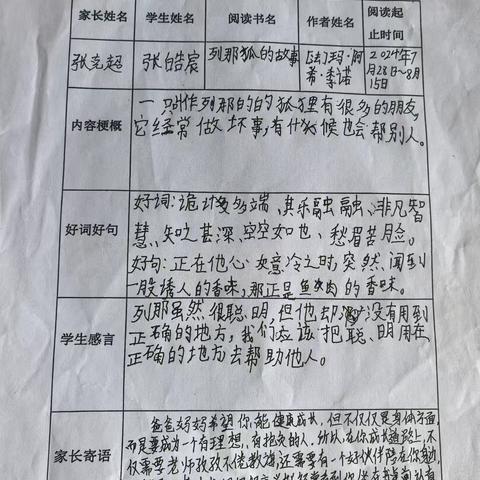 家长姓名 学生姓名 阅读书名 作者姓名 阅读起止时间
张克超 张皓宸 列那狐的故事 [法]玛·阿希·季诺 2024年7月28日~8月15日
内容梗概
一只叫作列那的的狐狸有很多的朋友,
它经常做坏事,有什么候也会帮别人。
好词好句
好词:诡计多端、其乐融融、非凡智
慧、知之甚深、空空如也、愁眉苦脸。
好句:正在他心如意冷之时,突然闻到
一股诱人的香味,那正是鱼肉的香味。
学生感言
列那虽然很聪明,但他却没有用到
正确的地方,我们应该把聪明用在
正确的地方去帮助他人。
家长寄语
爸爸妈妈希望你,能健康成长,但不仅仅是身体方面,
而是要成为一个有理想、有抱负的人。所以,在你成长道路上,不
仅需要老师孜孜不倦教诲,还需要有一个好伙伴陪在你身边,